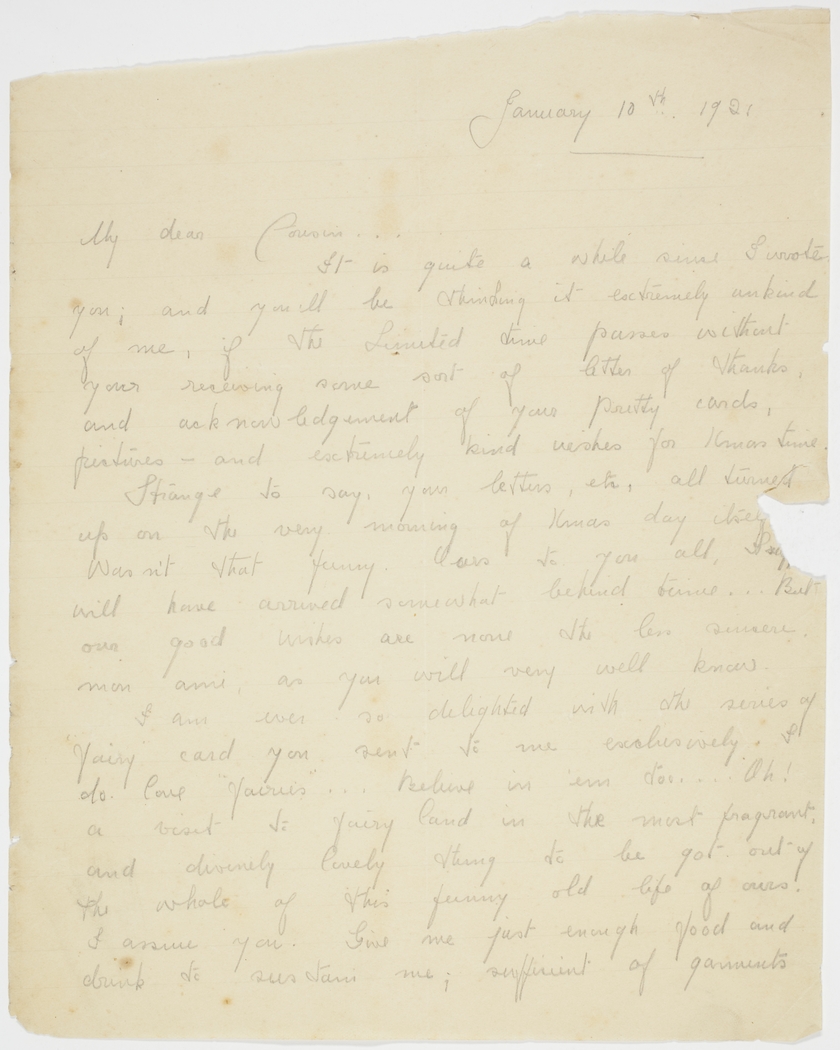 January 10th. 1921
My dear Cousin...
It is quite a while since I wrote
you; and you'll be thinking it extremely unkind
of me, if the Limited time passes without
your receiving some sort of letter of thanks,
and acknowledgement of your pretty cards,
pictures – and extremely kind wishes for Xmas time.
Strange to say, your letters, etc, all turned
up on the very morning of Xmas day itself
Wasn't that funny. Ours to you all, I
will have arrived somewhat behind time... But
our good wishes are none the less sincere.
mon ami, as you will very well know.
am ever so delighted with the series of
fairy card you sent to me exclusively. I
do. love "fairies"... Believe in 'em too.... Oh!
a visit to fairy land in the most fragrant.
and divinely lovely thing to be got out of
the whole of this funny old life of ours.
I assure you. Give me just enough food and
drink to sustain me; sufficient of garments